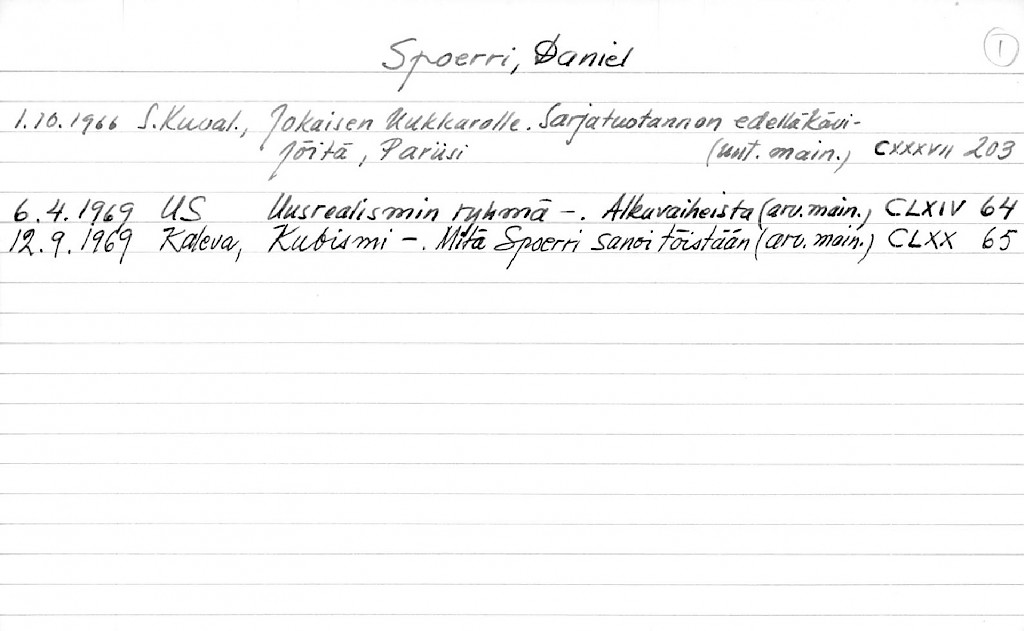 Spoerri, Daniel 1
1.10.1966 S.Kuval., Jokaisen kukkarolle. Sarjatuotannon edelläkävi-
jöitä, Pariisi (uut. main.) CXXXVII 203
6.4.1969 US Uusrealismin ryhmä -. Alkuvaiheista (arv. main.) CLXIV 64
12.9.1969 Kaleva, Kubismi -. Mitä Spoerri sanoi töistään (arv. main.) CLXX 65